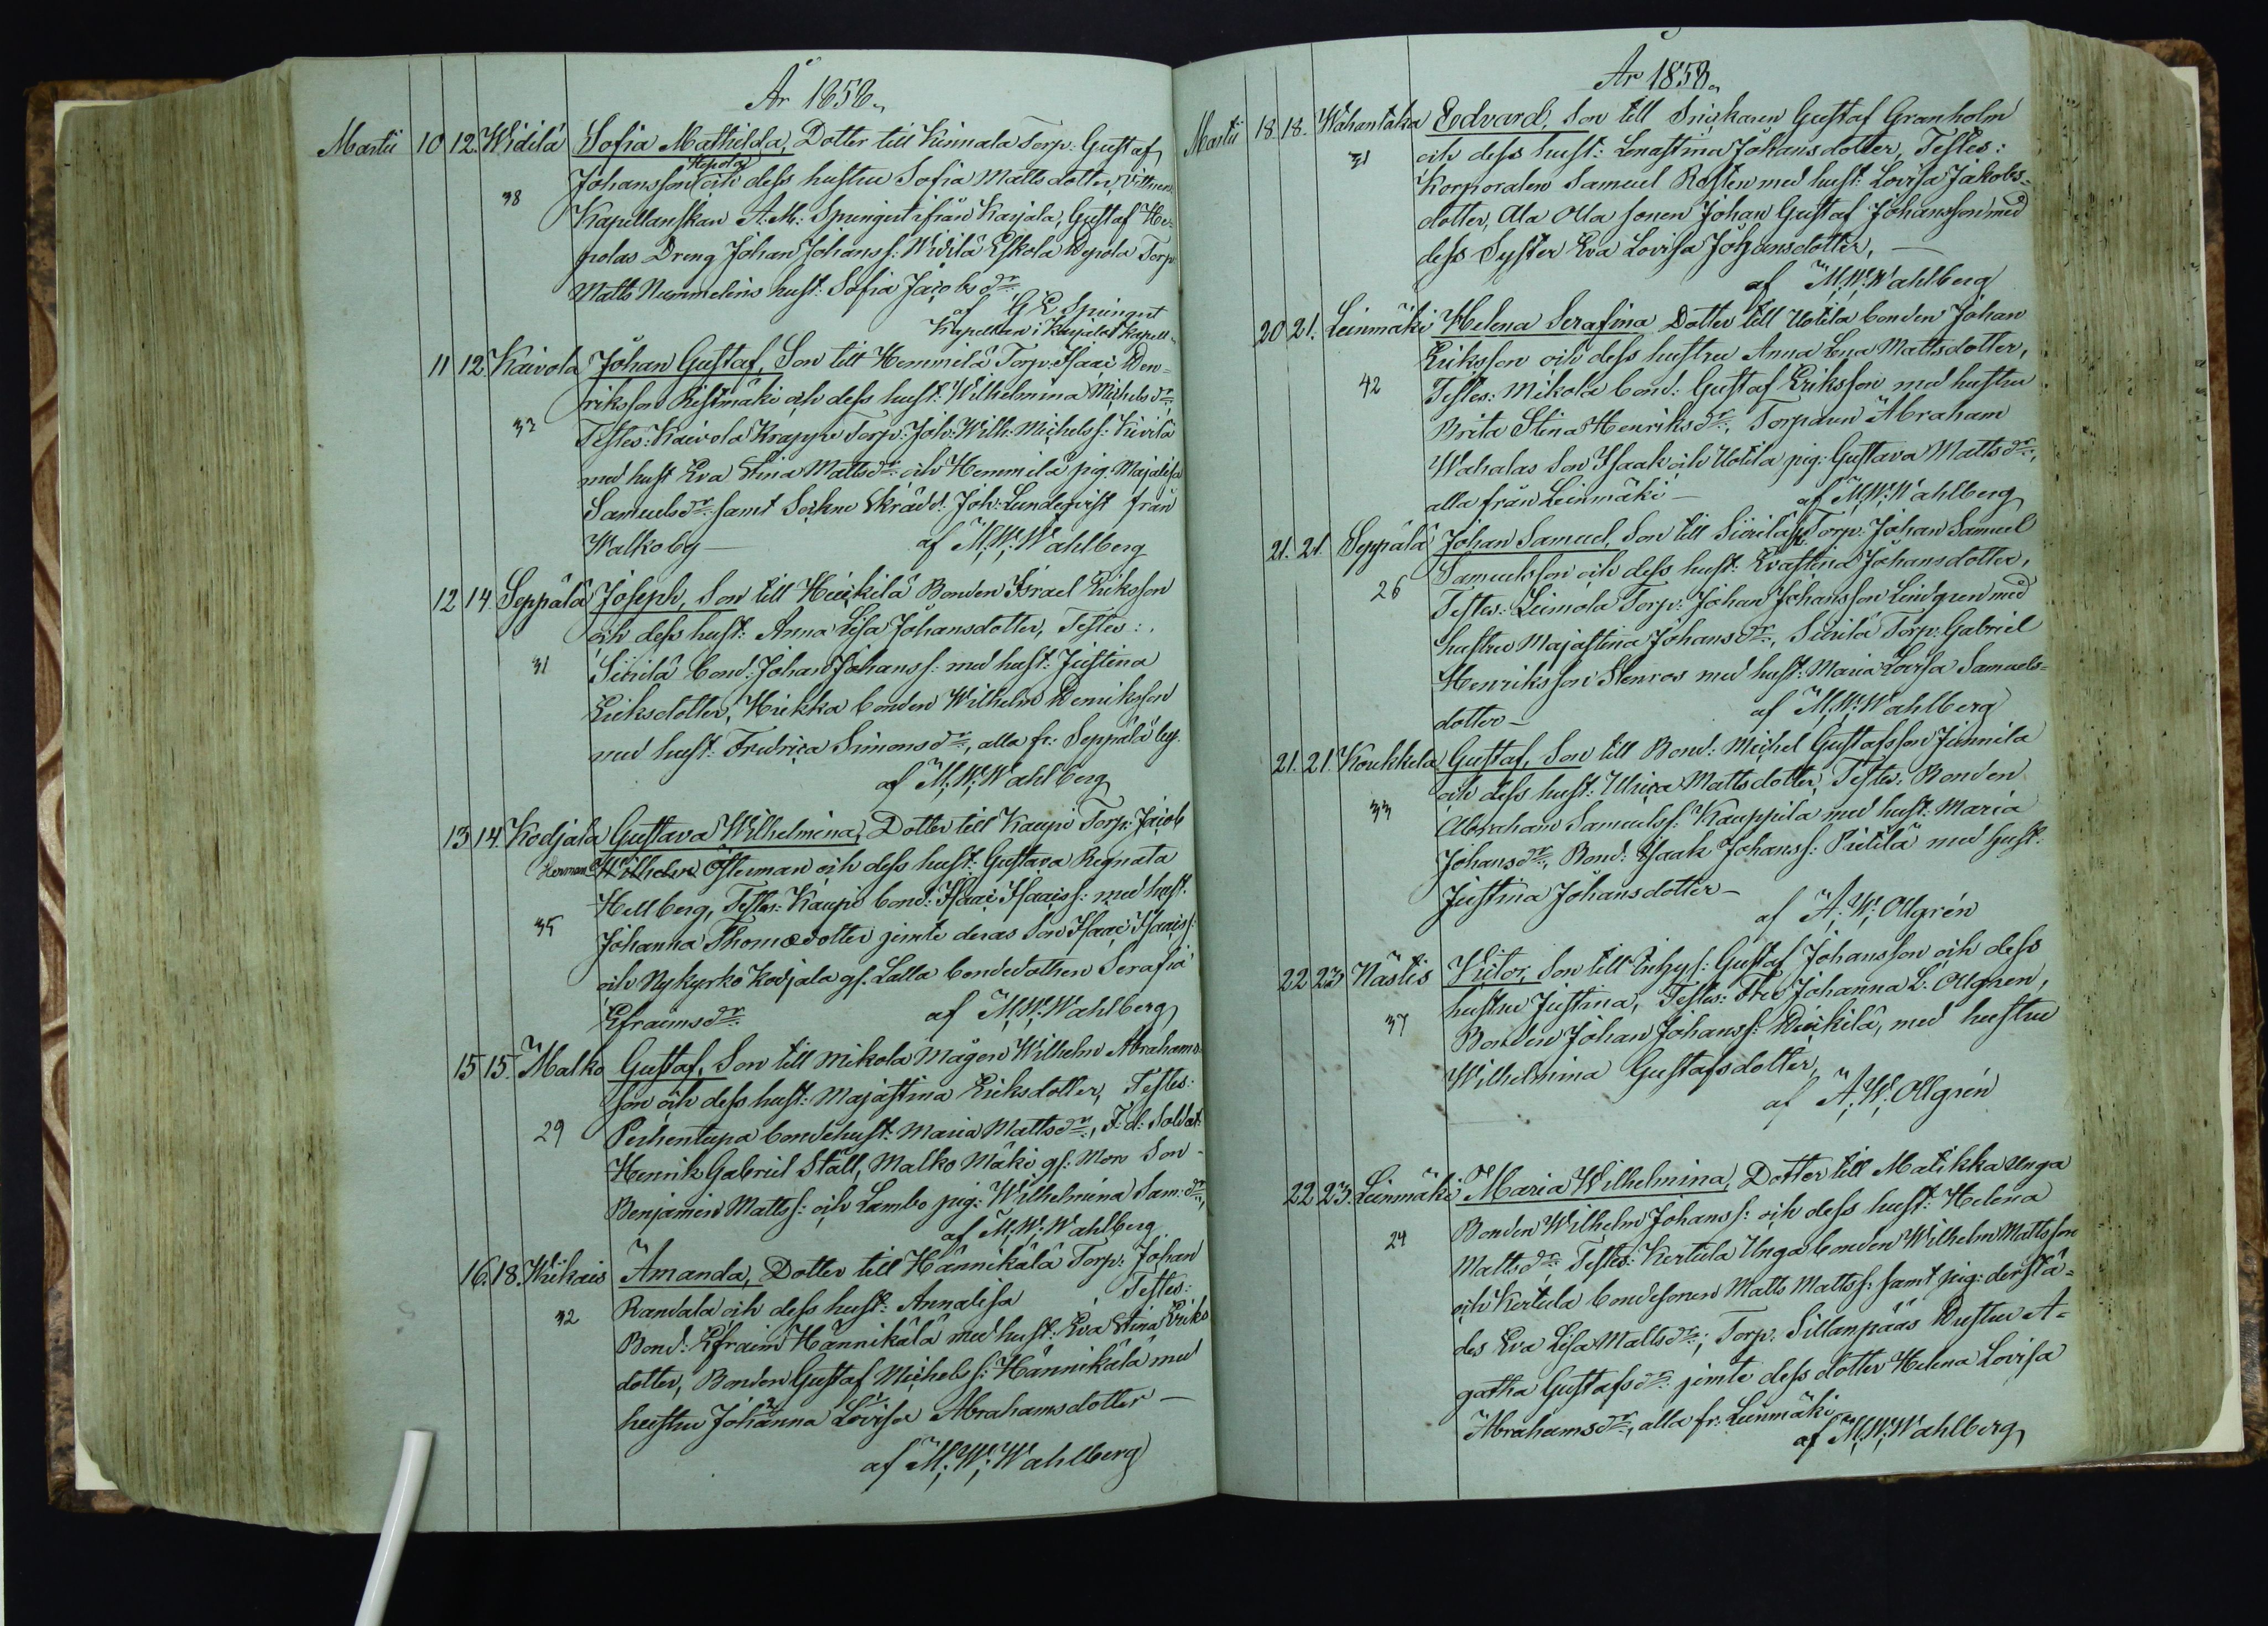 År 1858.
Martii 10 12. Widilä Sofia Mathilda, Dotter till Kinnala Torp: Gustaf
Hepola
38 Johansson och dess hustru Sofia Mattsdotter, Vittnen:
Kapellanskan A. M: Springert ifrån Karjala, Gustaf He-
polas Dreng Johan Johanss: Widilä Eskola Torp
Matts Nummelins hust: Sofia Jacobsdr:
af G E Springert
Kapellan i Karjala Kapell
11 12. Kaivola Johan Gustaf, Son till Hemmilä Torp: Isaac Hen-
riksson Ristmäki och dess hust: Wilhelmina Michelsdr:
Testes: Kaivola Krappe Torp: Joh: Wilh: Michelss: Kivilä
med hust Eva Stina Mattsdr: och Hemmilä pig: Majalisa
Samuelsdr: samt Sockne Skrädd: Joh: Lundqvist från
Walko by — af M: W: Wahlberg
12 14. Seppälä Joseph, Son till Heickilä Bonden Israel Eriksson
och dess hust: Anna Lisa Johansdotter, Testes:
31 Sirilä bond: Johan Johanss: med hust: Justina
Eriksdotter, Hiukka bonden Wilhelm Henriksson
med hust: Fredrica Simonsdr:, alla fr: Seppälä by.
af M: W: Wahlberg
13 14. Kodjala Gustava Wilhelmina, Dotter till Kaupi Torp: Jacob
Herman Wilhelm Österman och dess hust: Gustava Regnata
Hellberg, Testes: Kaupi bond: Isaac Isaacss: med hust:
35 Johanna Thomædotter jemte deras Son Isaac Isaacss:
och Nykyrko Kodjala gs. Lalla bondedottren Serafia
Efraimsdr: af M: W: Wahlberg
15 15. Malko Gustaf, Son till Mikola Mågen Wilhelm Abrahams-
son och dess hust: Majastina Eriksdotter, Testes:
29 Perhentupa bondehust: Maria Mattsdr:, F. d. Soldat:
Henrik Gabriel Ståll, Malko Mäki gs: Mors Son
Benjamin Matts: och Lambo pig: Wilhelmina Sam:dr:,
af M: W: Wahlberg
16. 18. Kukais Amanda, Dotter till Hännikälä Torp: Johan
32 Randala och dess hust: Annalisa Testes:
Bond: Efraim Hännikälä med hust: Eva Stina Eriks
dotter, Bonden Gustaf Michelss: Hännikälä med
hustru Johanna Lovisa Abrahamsdotter —
af M: W: Wahlberg
År 1858.
Martii 18. 18. Wahantaka Edvard, Son till Snickaren Gustaf Granholm
31 och dess hust: Lenastina Johansdotter, Testes:
Korporalen Samuel Rosten med hust: Lovisa Jakobs-
dotter, Ala Olla sonen Johan Gustaf Johansson med
dess Syster Eva Lovisa Johansdotter, —
af M: W: Wahlberg
20 21. Leinmäki Helena Serafina Dotter till Uotila bonden Johan
Eriksson och dess hustru Anna Lena Mattsdotter,
42 Testes: Mikola bond: Gustaf Eriksson med hustru
Brita Stina Henriksdr:, Torparen Abraham
Wahalas Son Isaak och Uotila pig: Gustava Mattsdr:,
alla från Leinmäki — af M: W: Wahlberg
21. 21. Seppälä Johan Samuel, Son till Sirilä Torp: Johan Samuel
Samuelsson och dess hust: Evastina Johansdotter,
26 Testes: Leimola Torp: Johan Johansson Lindgren med
hustru Majastina Johansdr:, Sirilä Torp: Gabriel
Henriksson Stenros med hust: Maria Lovisa Samuels-
dotter — af M: W: Wahlberg
21. 21. Koukkela Gustaf, Son till Bond: Michel Gustafsson Junnila
och dess hust: Ulrica Mattsdotter, Testes: Bonden
33 Abraham Samuelss: Kauppila med hust: Maria
Johansdr:, Bond: Isaak Johanss: Pietilä med hust:
Justina Johansdotter —
af A: W: Ollgrén
22 23 Nästis Victor, Son till Inhys: Gustaf Johansson och dess
hustru Justina, Testes: Fru Johanna L. Ollgren,
37 Bonden Johan Johanss: Heickilä, med hustru
Wilhelmina Gustafsdotter,
af A: W: Ollgrén
22 23. Leinmäki Maria Wilhelmina, Dotter till Matikka Unga
Bonden Wilhelm Johanss: och dess hust: Helena
24 Mattsdr: Testes: Kertula Unga bonden Wilhelm Mattsson
och Kertula bondesonen Matts Mattss: samt pig: derstä-
des Eva Lisa Mattsdr:, Torp: Sillanpääs Hustru A-
gatha Gustafsdr: jemte dess dotter Helena Lovisa
Abrahamsdr:, alla fr: Leinmäki
af M: W: Wahlberg